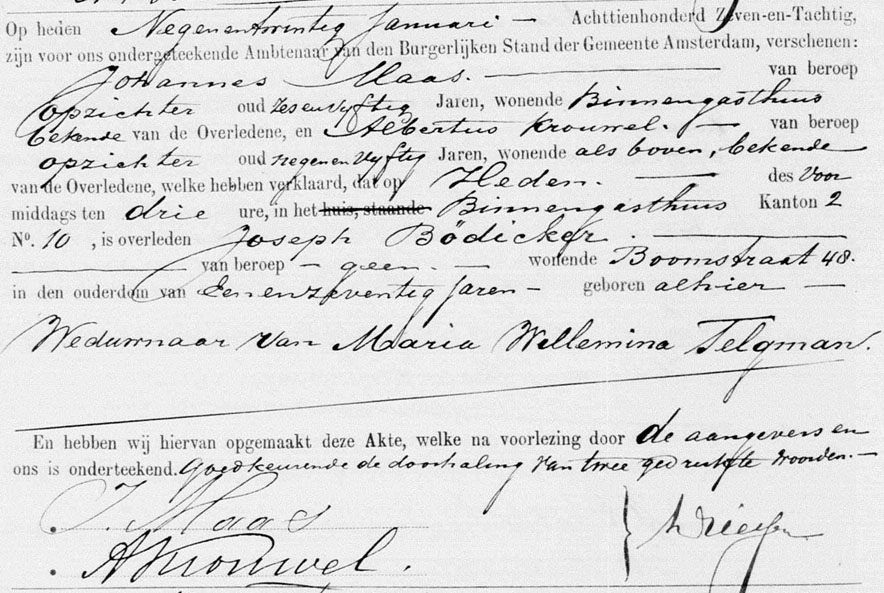 Op heden Negenentwintig Januari — Achttienhonderd Zeven-en-Tachtig,
zijn voor ons ondergeteekende Ambtenaar van den Burgerlijken Stand der Gemeente Amsterdam, verschenen:
Johannes Maas. — van beroep
opzichter oud zesenvyftig Jaren, wonende Binnengasthuis
bekende van de Overledene, en Albertus Krouwel. — van beroep
opzichter oud negenenvyftig Jaren, wonende als boven, bekende
van de Overledene, welke hebben verklaard, dat op Heden. — des Voor
middags ten drie ure, in het huis, staande Binnengasthuis Kanton 2
No. 10 , is overleden Joseph Bödicker. —
— van beroep — geen. — wonende Boomstraat 48.
in den ouderdom van Eenenzeventig Jaren — geboren alhier —
Weduwnaar van Maria Willemina Telgman.
En hebben wij hiervan opgemaakt deze Akte, welke na voorlezing door de aangevers en
ons is onderteekend. Goedkeurende de doorhaling van twee gedrukte woorden. —
J. Maas
A Krouwel.